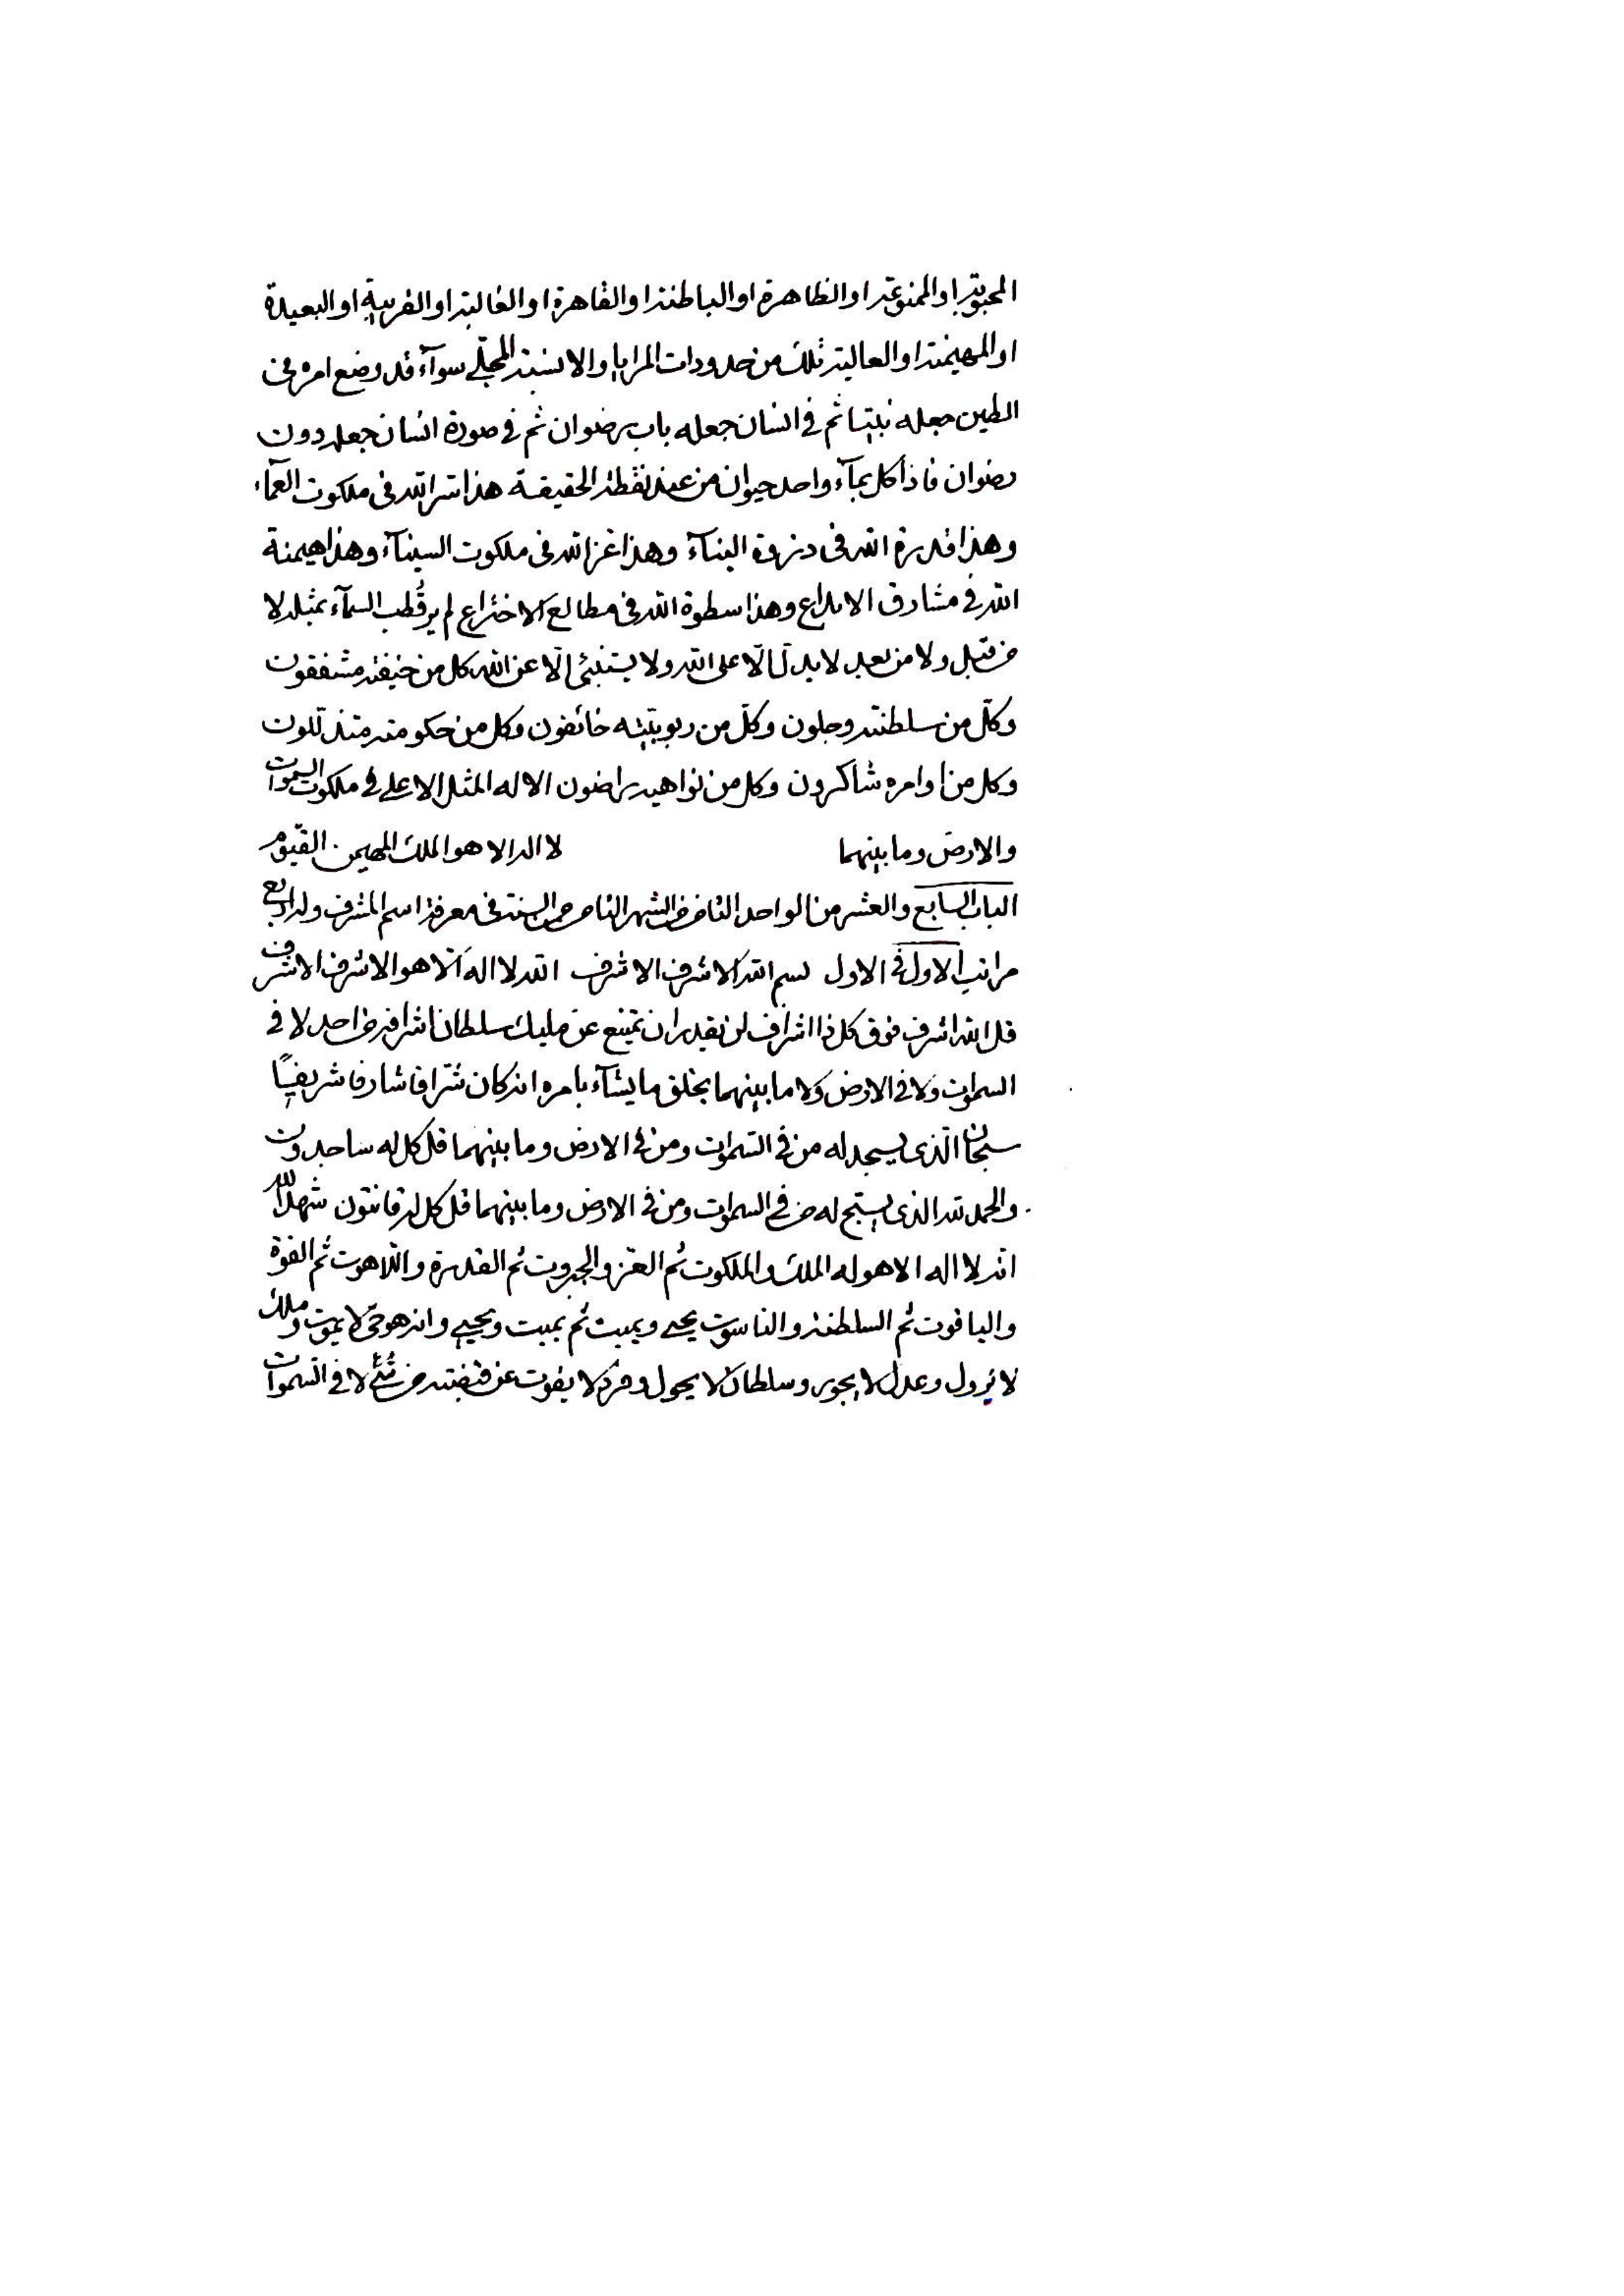 المحبوبة او الممنوعة او الظاهرة او الباطنة او القاهرة او الغالبة او القريبة او البعيدة
او المهيمنة او العالية تلك من حدودات المرايا والا نسبة المجلّي سوآء قد وضع امره فى
الطين جعله نبيّا ثم في انسان جعله باب رضوان ثم في صورة انسان جعله دون
رضوان فاذا كل بمآء واحد حيوان من عند نقطة الحقيقة هذا سر الله فى ملكوت العمآء
وهذا قدرة الله فى ذروة البنآء وهذا عز الله فى ملكوت السينآء وهذا هيمنة
الله في مشارق الابداع وهذا سطوة الله فى مطالع الاختراع لم ير قُطب السمآء بمثله لا
من قبل ولا من بعد لا يدلّ الّا على الله ولا يستنبئ الّا عن الله كل من خيفته مشفقون
وكلّ من سلطنته وجلون وكلّ من ربوبيّته خائفون وكل من حكومته متذللون
وكل من اوامره شاكرون وكل من نواهيه راضون الا له المثل الاعلى في ملكوت السموات
والارض وما بينهما لا اله الا هو الملك المهيمن القيّوم
الباب السابع والعشر من الواحد الثامن من الشهر الثامن من السنة فى معرفة اسم المشرف وله اربع
مراتب الاول في الاول بسم الله الاشرف الاشرف الله لا اله الّا هو الاشرف الاشرف
قل الله اشرف فوق كل ذا اشراف لن يقدر ان يمتنع عن مليك سلطان اشرافه من احد لا في
السموات ولا في الارض ولا ما بينهما يخلق ما يشآء بامره انه كان شرّافا شارفا شريفًا
سبحان الّذى يسجد له من في السموات ومن في الارض وما بينهما قل كل له ساجدون
والحمد لله الذى يسبّح له من في السموات ومن في الارض وما بينهما قل كل له قانتون شهد الله
انه لا اله الا هو له الملك والملكوت ثم العز والجبروت ثم القدرة واللاهوت ثم القوة
والياقوت ثم السلطنة والناسوت يحيى ويميت ثم يميت ويحيي وانه هو حيّ لا يموت وملك
لا يزول وعدل لا يجور وسلطان لا يحول وفرد لا يفوت عن قبضته من شيْء لا في السموات